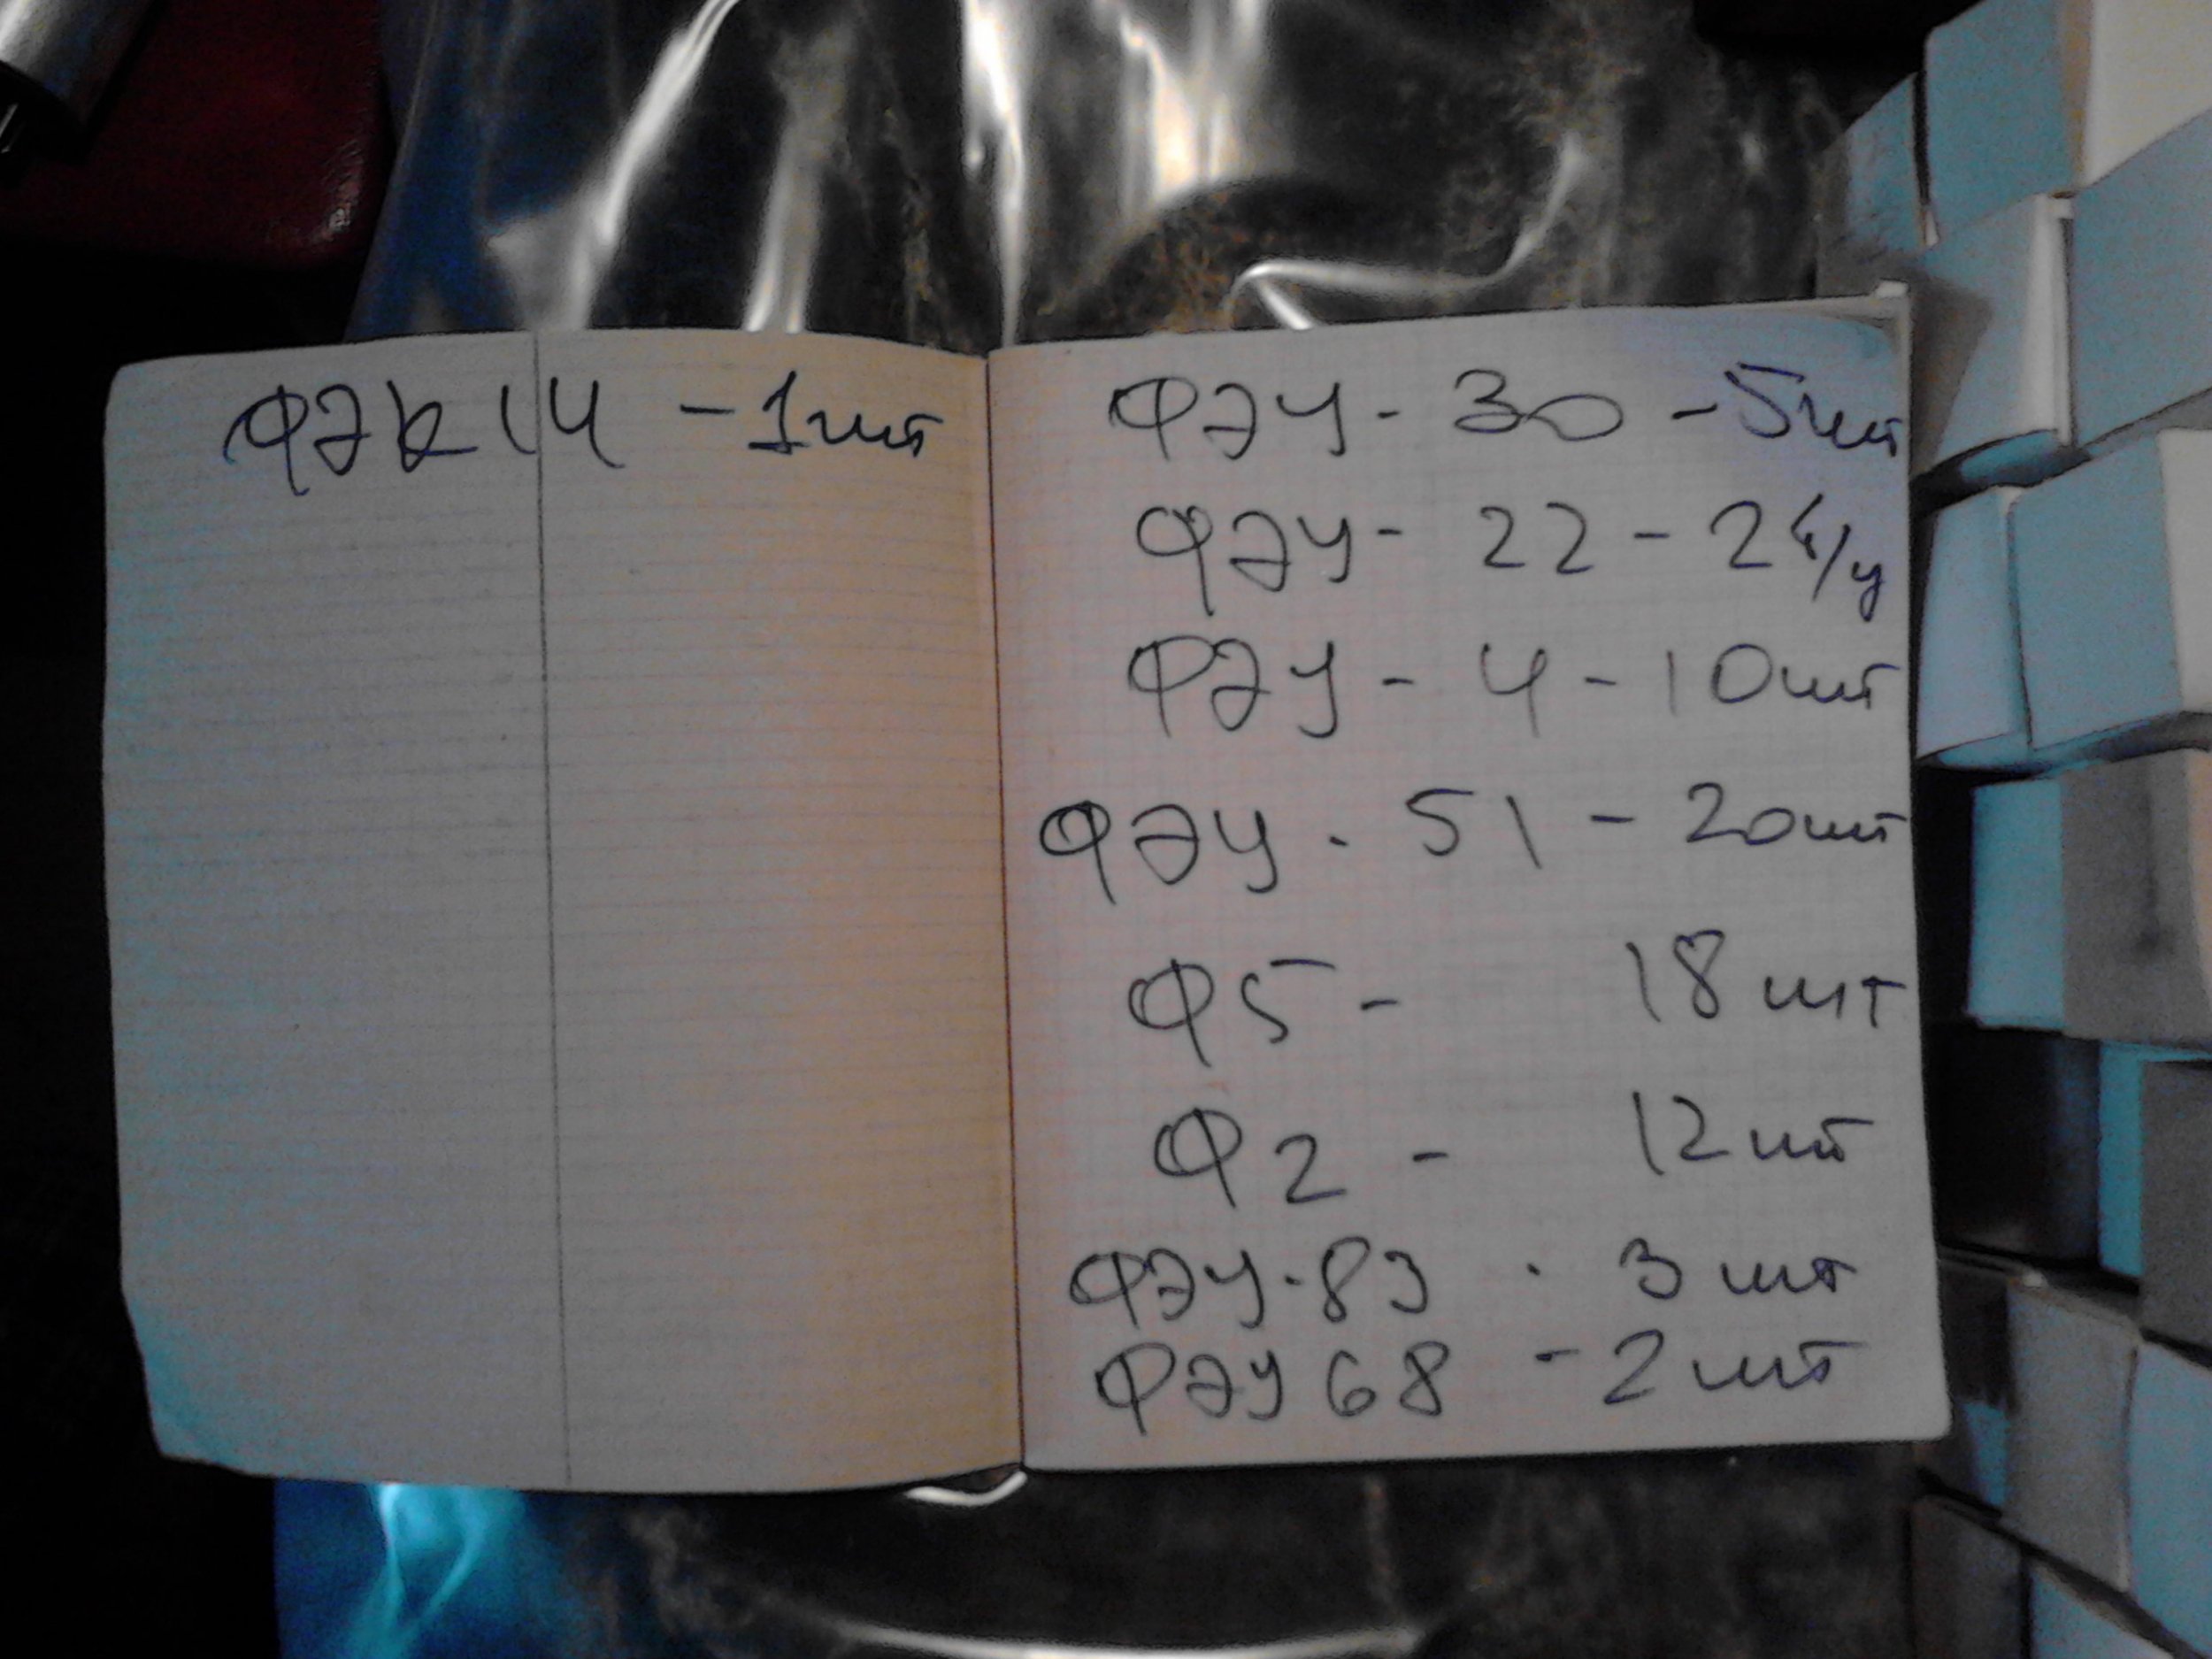 ФЭК 14 - 1 шт
ФЭУ - 30 - 5 шт
ФЭУ - 22 - 2 б/у
ФЭУ - 4 - 10 шт
ФЭУ - 51 - 20 шт
Ф5 - 18 шт
Ф2 - 12 шт
ФЭУ-83 - 3 шт
ФЭУ 68 - 2 шт